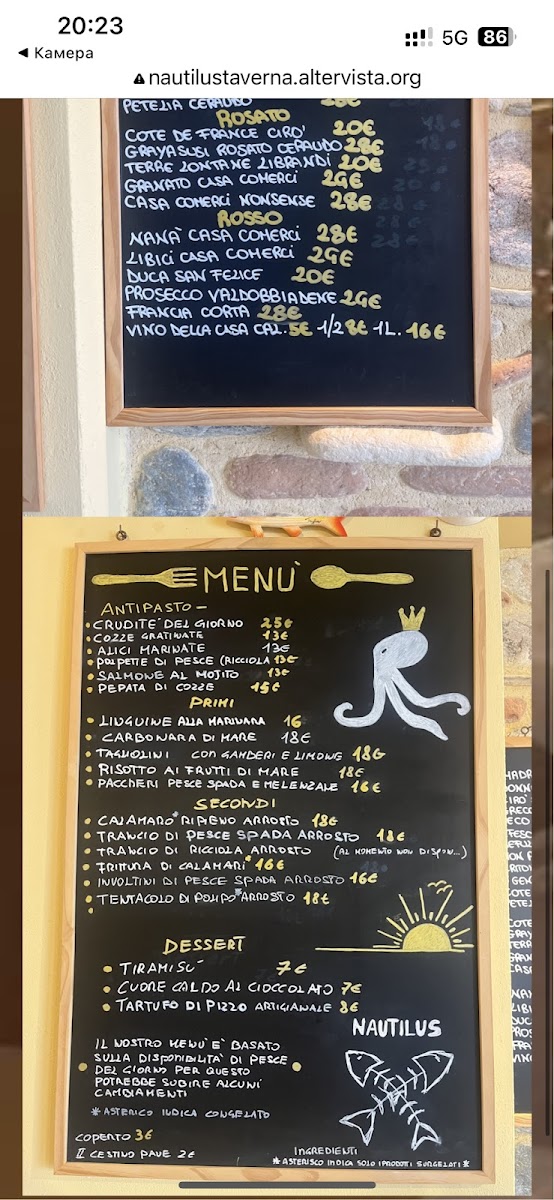 20:23
5G 86
◀ Камера
nautilustaverna.altervista.org
PETELIA CERAUDO 28€
ROSATO
COTE DE FRANCE CIRO' 20€
GRAYASUSI ROSATO CERAUDO 28€
TERRE LONTANE LIBRANDI 20€
GRANATO CASA COMERCI 26€
CASA COMERCI NONSENSE 28€
ROSSO
NANÀ CASA COMERCI 28€
LIBICI CASA COMERCI 26€
DUCA SAN FELICE 20€
PROSECCO VALDOBBIADENE 26€
FRANCIA CORTA 28€
VINO DELLA CASA CAL. 5€ 1/2 8€ 1L. 16€
MENU'
ANTIPASTO -
• CRUDITE' DEL GIORNO 25€
• COZZE GRATINATE 13€
• ALICI MARINATE 13€
• POLPETTE DI PESCE (RICCIOLA 13€
• SALMONE AL MOJITO 13€
• PEPATA DI COZZE 15€
PRIMI
• LINGUINE ALLA MARINARA 16
• CARBONARA DI MARE 18€
• TAGLIOLINI CON GAMBERI E LIMONE 18€
• RISOTTO AI FRUTTI DI MARE 18€
• PACCHERI PESCE SPADA E MELENZALE 16€
SECONDI
• CALAMARO* RIPIENO ARROSTO 18€
• TRANCIO DI PESCE SPADA ARROSTO 18€
• TRANCIO DI RICCIOLA ARROSTO (AL MOMENTO NON DISPON...)
• FRITTURA DI CALAMARI* 16€
• INVOLTINI DI PESCE SPADA ARROSTO 16€
• TENTACOLO DI POLIPO* ARROSTO 18€
DESSERT
• TIRAMISU' 7€
• CUORE CALDO AL CIOCCOLATO 7€
• TARTUFO DI PIZZO ARTIGIANALE 8€
NAUTILUS
IL NOSTRO MENU È BASATO
SULLA DISPONIBILITÀ DI PESCE
DEL GIORNO PER QUESTO
POTREBBE SUBIRE ALCUNI
CAMBIAMENTI
* ASTERICO INDICA CONGELATO
COPERTO 3€
IL CESTINO PANE 2€
INGREDIENTI
* ASTERISCO INDICA SOLO I PRODOTTI SURGELATI *